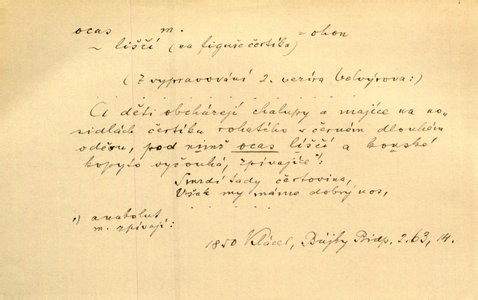 ocas m. = ohon
~ liščí (na figuře čertíka)
(Z vypravování 2. vezíra :)
Ci děti obcházejí chalupy a majíce na no-
sidlách čertíka rohatého v černém dlouhém
oděvu, pod nímž ocas liščí a konské
kopyto vyčouhá, zpívajíce *):
Smrdí tady čertovina,
Však my máme dobrý nos,
*) anakolut,
m. zpívají:
1850 Klácel, Bájky Bidp. 2.63, 14.